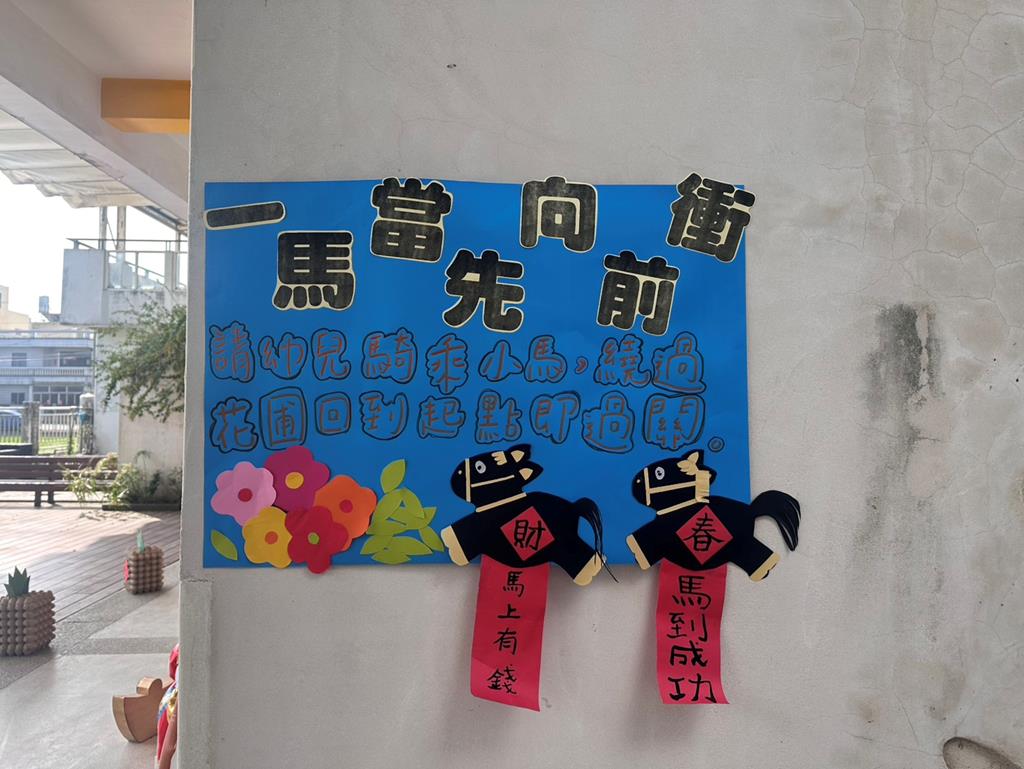 一馬當先向前衝
請幼兒騎乘小馬，繞過
花圃回到起點即過關。
財
馬上有錢
春
馬到成功